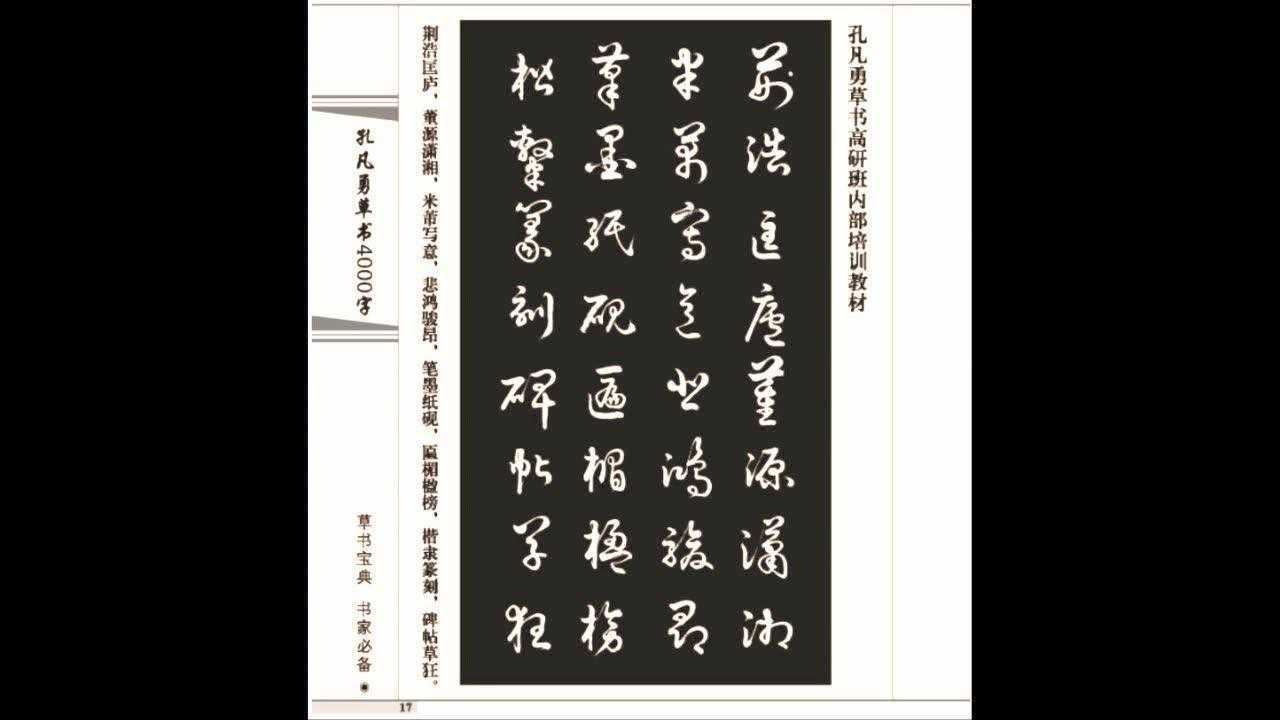 孔凡勇草书高研班内部培训教材
荊浩匡廬董源瀟湘
米芾寫意悲鴻駿昂
筆墨紙硯匾楣楹榜
楷隸篆刻碑帖草狂
荆浩匡庐，董源潇湘，米芾写意，悲鸿骏昂，笔墨纸砚，匾楣楹榜，楷隶篆刻，碑帖草狂。
孔凡勇草书4000字
草书宝典 书家必备
17